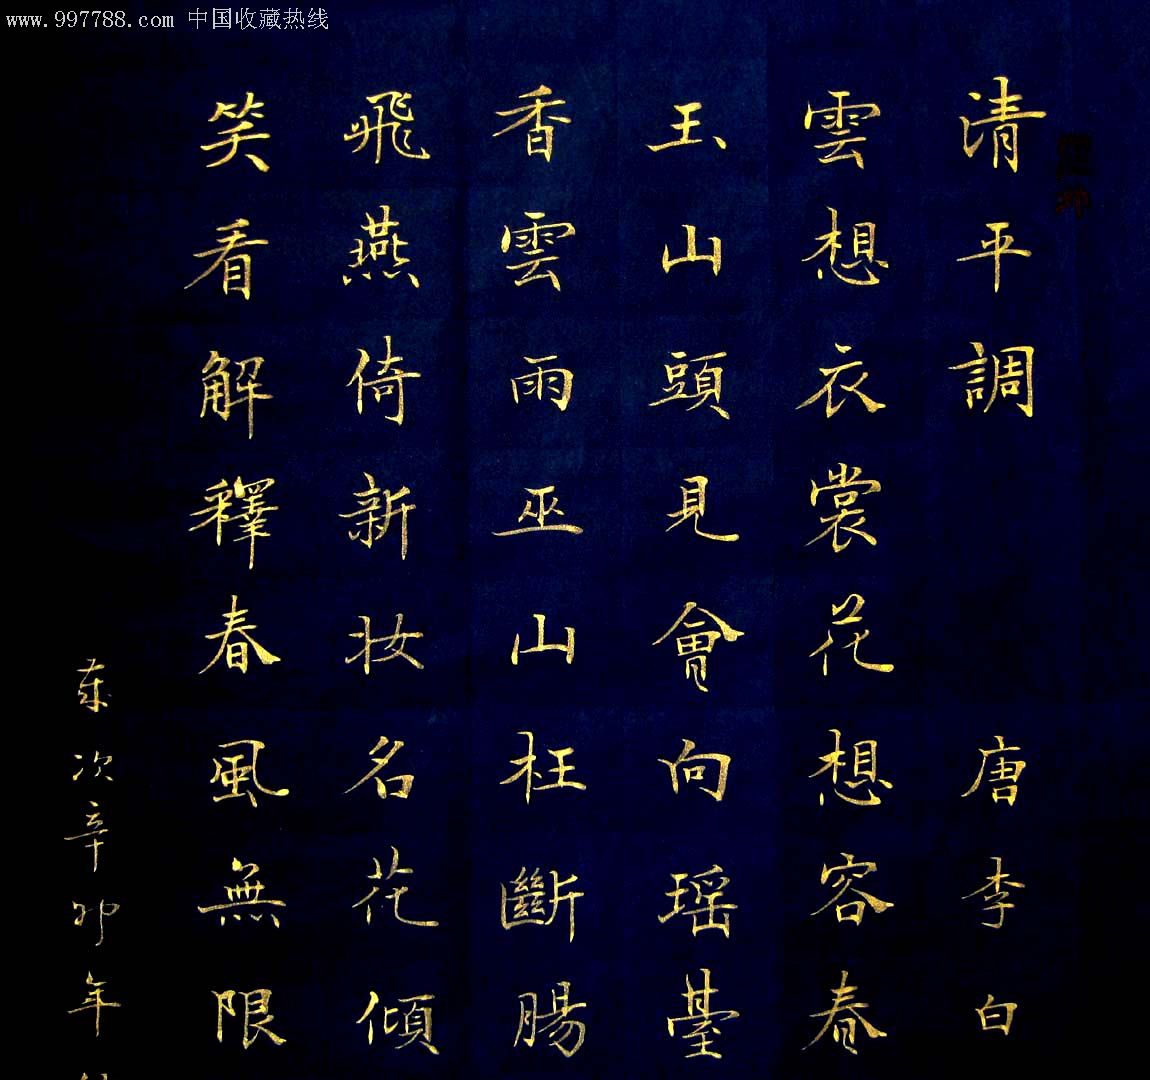 www.997788.com 中国收藏热线
清平調 唐李白
雲想衣裳花想容春
玉山頭見會向瑶臺
香雲雨巫山枉斷腸
飛燕倚新妆名花傾
笑看解釋春風無限
歲次辛卯年